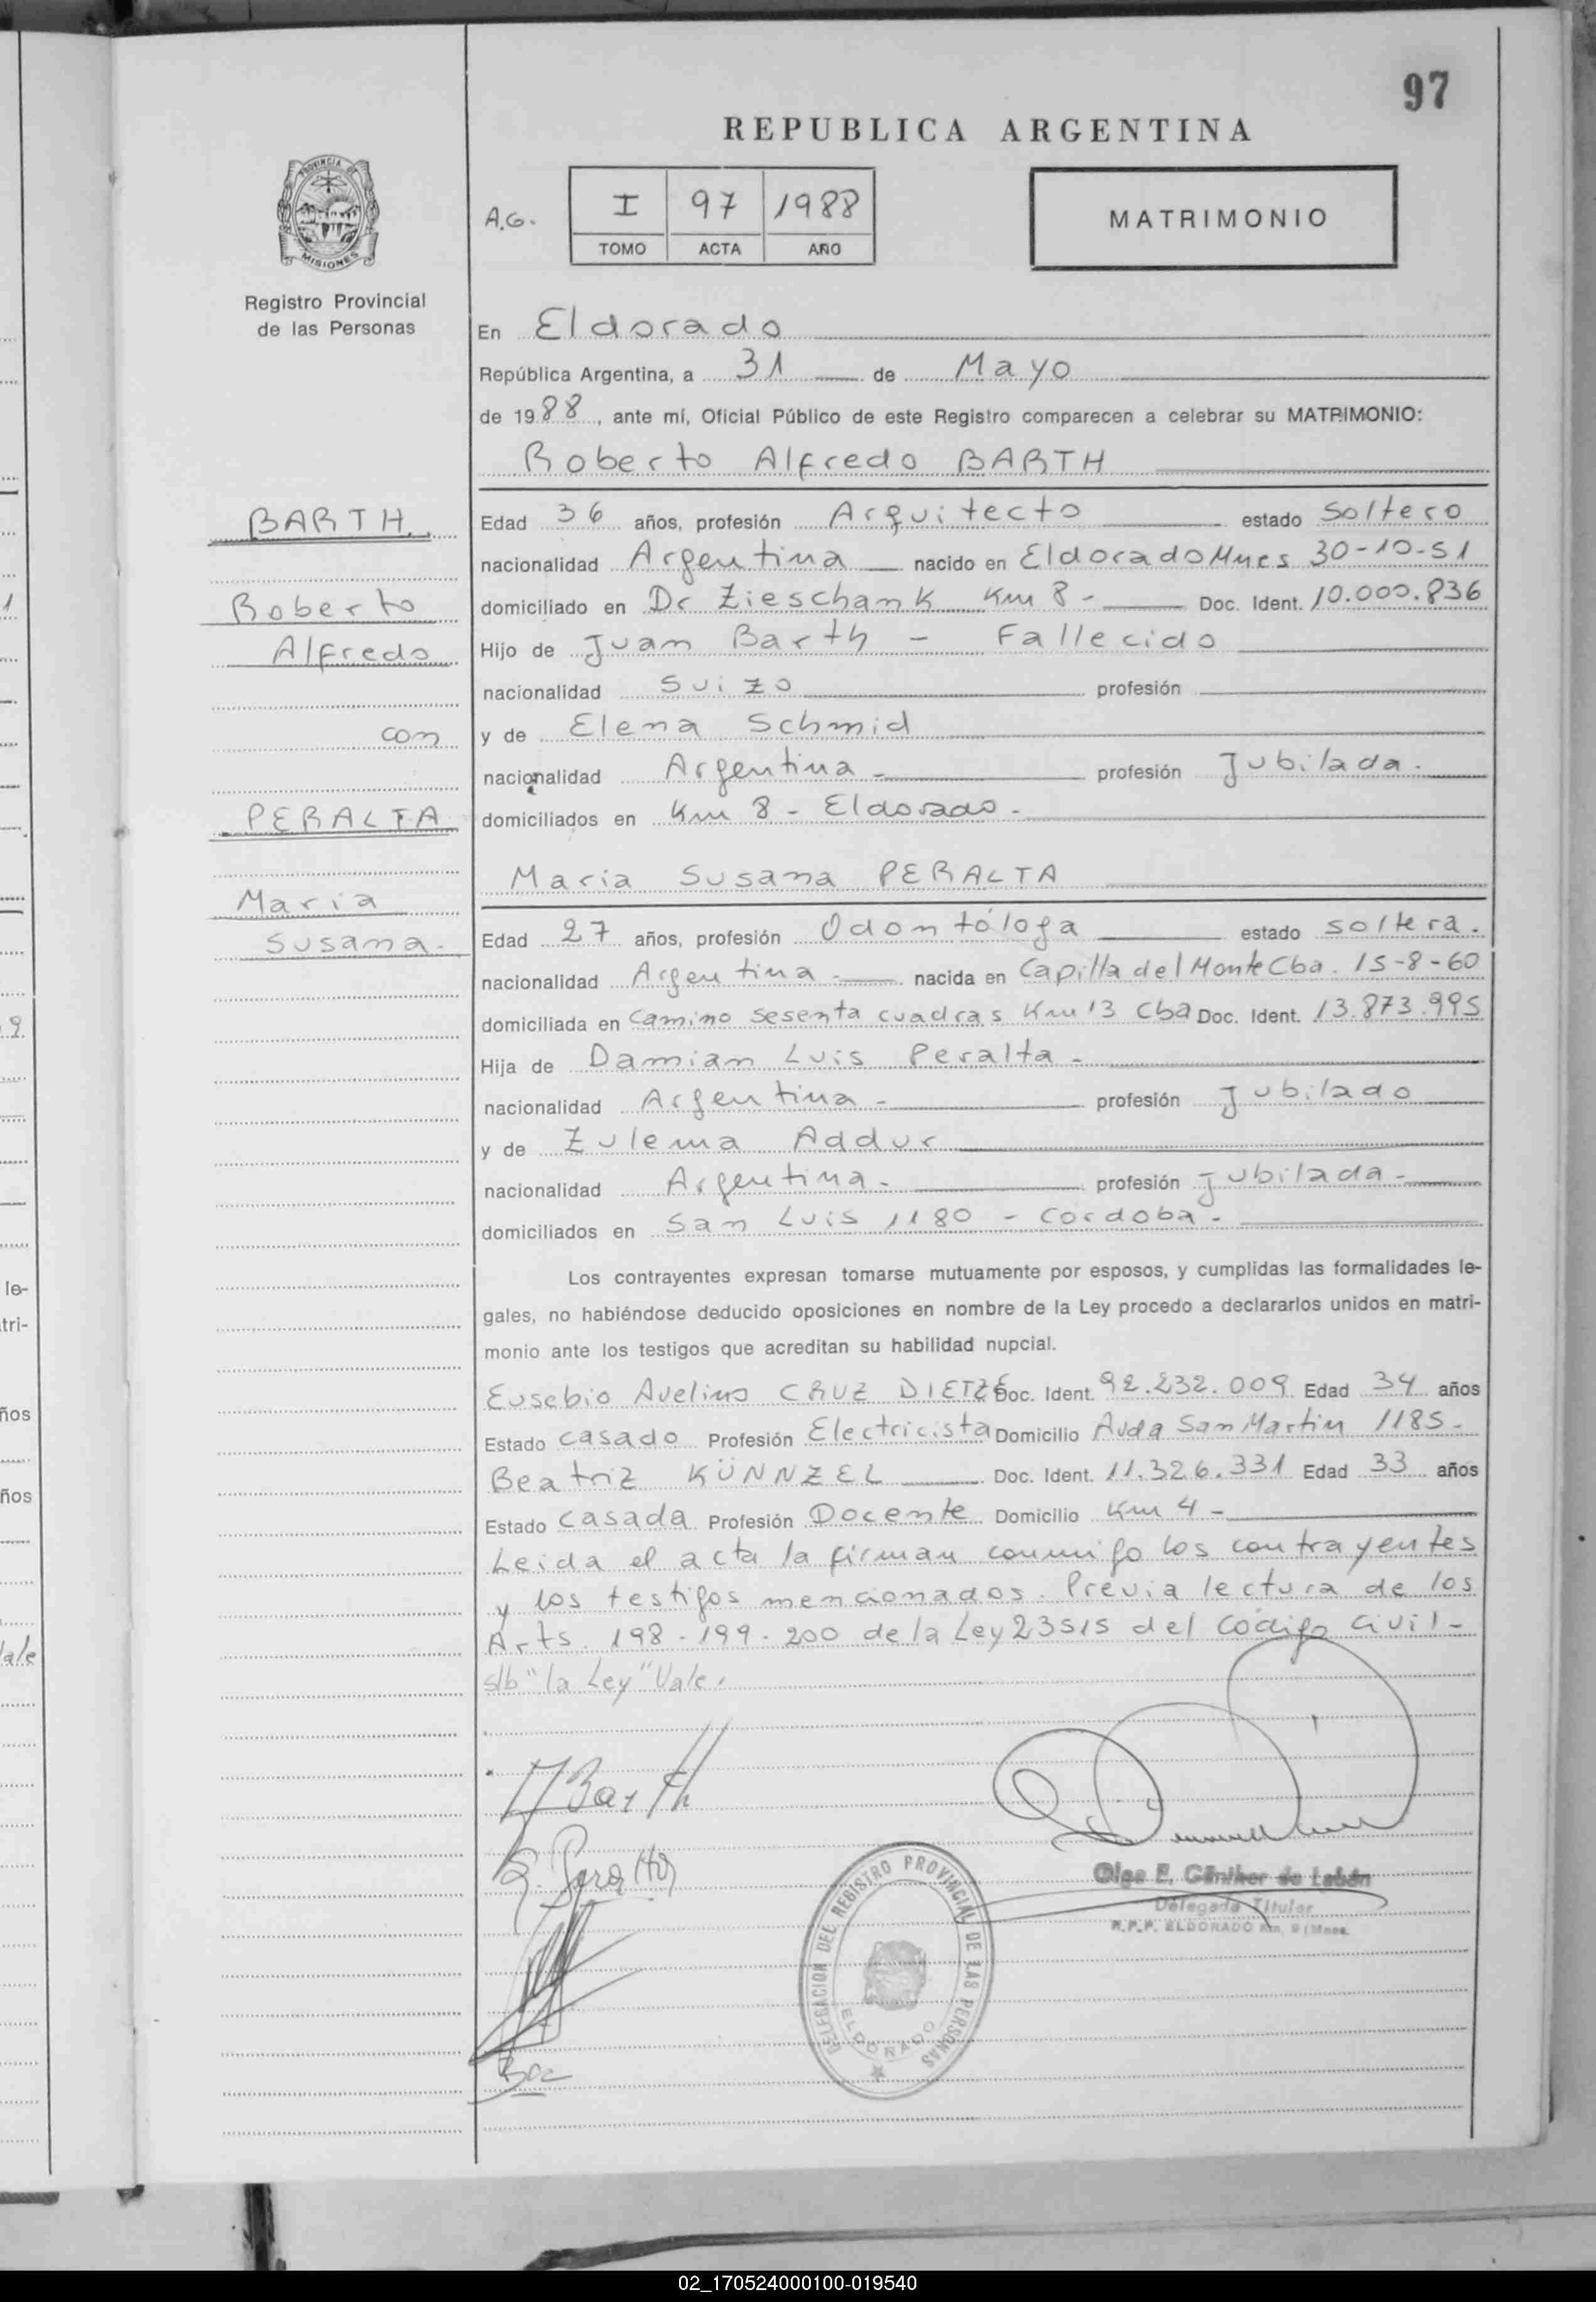 97
REPUBLICA ARGENTINA
PROVINCIA DE
MISIONES
Registro Provincial
de las Personas
A.G.
I 97 1988
TOMO ACTA AÑO
MATRIMONIO
En Eldorado
República Argentina, a 31 de Mayo
de 1988, ante mí, Oficial Público de este Registro comparecen a celebrar su MATRIMONIO:
Roberto Alfredo BARTH
BARTH
Roberto
Alfredo
con
PERALTA
Maria
Susana-
Edad 36 años, profesión Arquitecto estado soltero
nacionalidad Argentina nacido en Eldorado Mnes 30-10-51
domiciliado en Dr Zieschank Km 8- Doc. Ident. 10.000.836
Hijo de Juan Barth - Fallecido
nacionalidad Suizo profesión
y de Elena Schmid
nacionalidad Argentina- profesión Jubilada.
domiciliados en Km 8 - Eldorado-
Maria Susana PERALTA
Edad 27 años, profesión Odontóloga estado soltera.
nacionalidad Argentina- nacida en Capilla del Monte Cba. 15-8-60
domiciliada en Camino sesenta cuadras Km 13 Cba Doc. Ident. 13.873.995
Hija de Damian Luis Peralta-
nacionalidad Argentina- profesión Jubilado
y de Zulema Addur
nacionalidad Argentina- profesión Jubilada-
domiciliados en San Luis 1180 - Cordoba-
Los contrayentes expresan tomarse mutuamente por esposos, y cumplidas las formalidades le-
gales, no habiéndose deducido oposiciones en nombre de la Ley procedo a declararlos unidos en matri-
monio ante los testigos que acreditan su habilidad nupcial.
Eusebio Avelino CRUZ DIETZE Doc. Ident. 92.232.009 Edad 34 años
Estado casado Profesión Electricista Domicilio Avda San Martin 1185-
Beatriz KÜNNZEL Doc. Ident. 11.326.331 Edad 33 años
Estado casada Profesión Docente Domicilio Km 4-
Leida el acta la firman conmigo los contrayentes
y los testigos mencionados. Previa lectura de los
Arts. 198-199-200 de la Ley 23515 del codigo civil-
s/b "la Ley" Vale.
Barth
Olga E. Günther de Labán
Delegada Titular
R.P.P. ELDORADO Km. 9 (Mnes.
DELEGACION DEL REGISTRO PROVINCIAL DE LAS PERSONAS
ELDORADO
le-
tri-
ños
ños
02_170524000100-019540